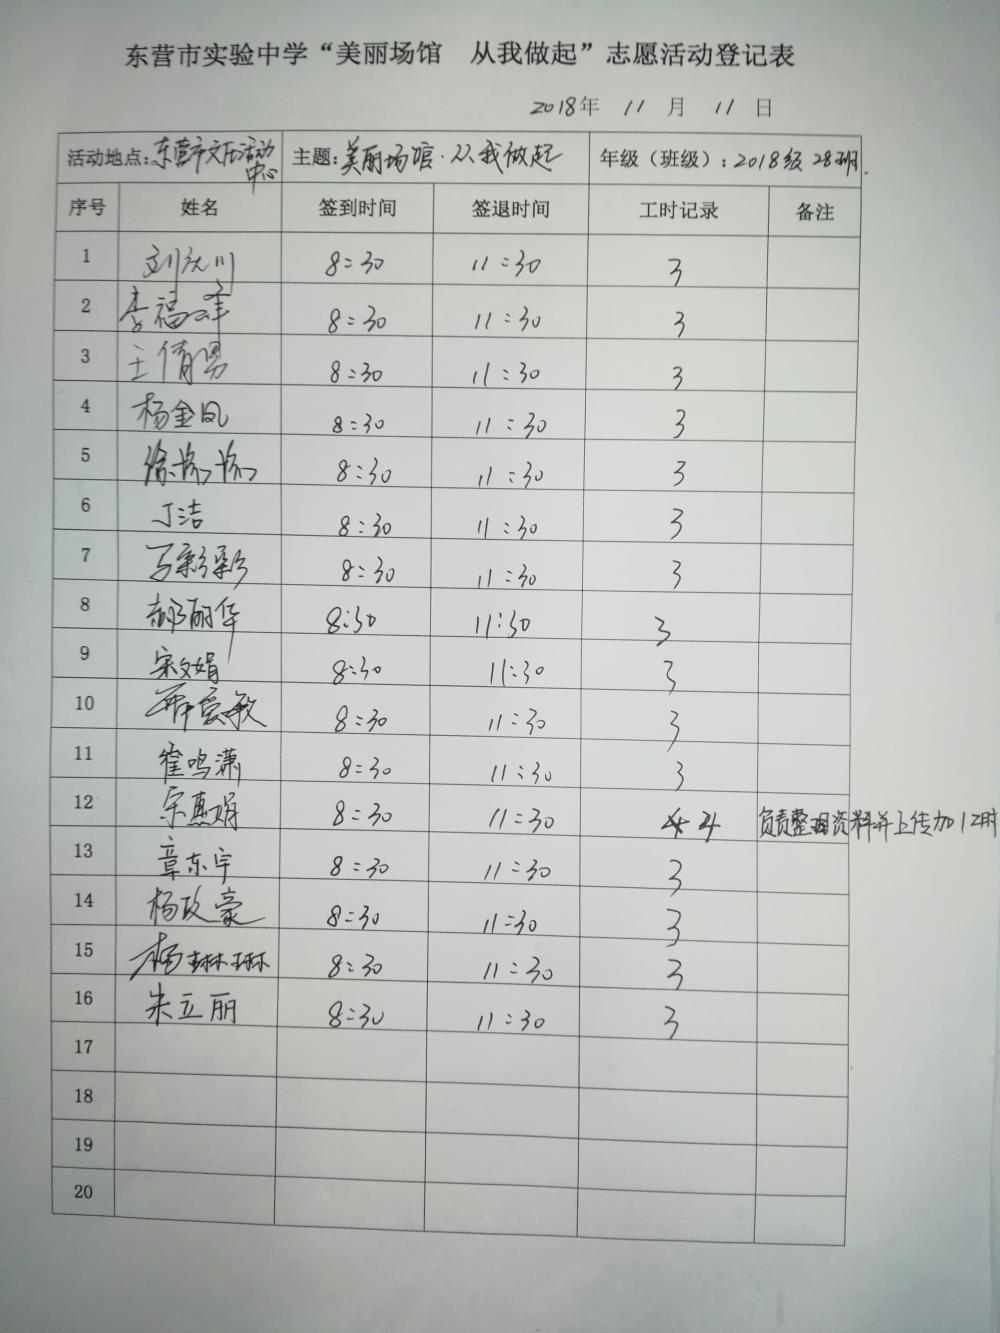 东营市实验中学“美丽场馆 从我做起”志愿活动登记表
2018年 11 月 11 日
活动地点：东营市文体活动中心 主题：美丽场馆·从我做起 年级（班级）：2018级28班.
序号 姓名 签到时间 签退时间 工时记录 备注
1 刘庆川 8:30 11:30 3
2 李福峰 8:30 11:30 3
3 王倩男 8:30 11:30 3
4 杨金凤 8:30 11:30 3
5 徐 8:30 11:30 3
6 丁洁 8:30 11:30 3
7 马彩彩 8:30 11:30 3
8 郝丽华 8:30 11:30 3
9 宋文娟 8:30 11:30 3
10 爱敏 8:30 11:30 3
11 崔鸣潇 8:30 11:30 3
12 宗惠娟 8:30 11:30 4 负责整理资料并上传加1工时
13 章东宇 8:30 11:30 3
14 杨政豪 8:30 11:30 3
15 杨琳琳 8:30 11:30 3
16 朱立丽 8:30 11:30 3
17
18
19
20